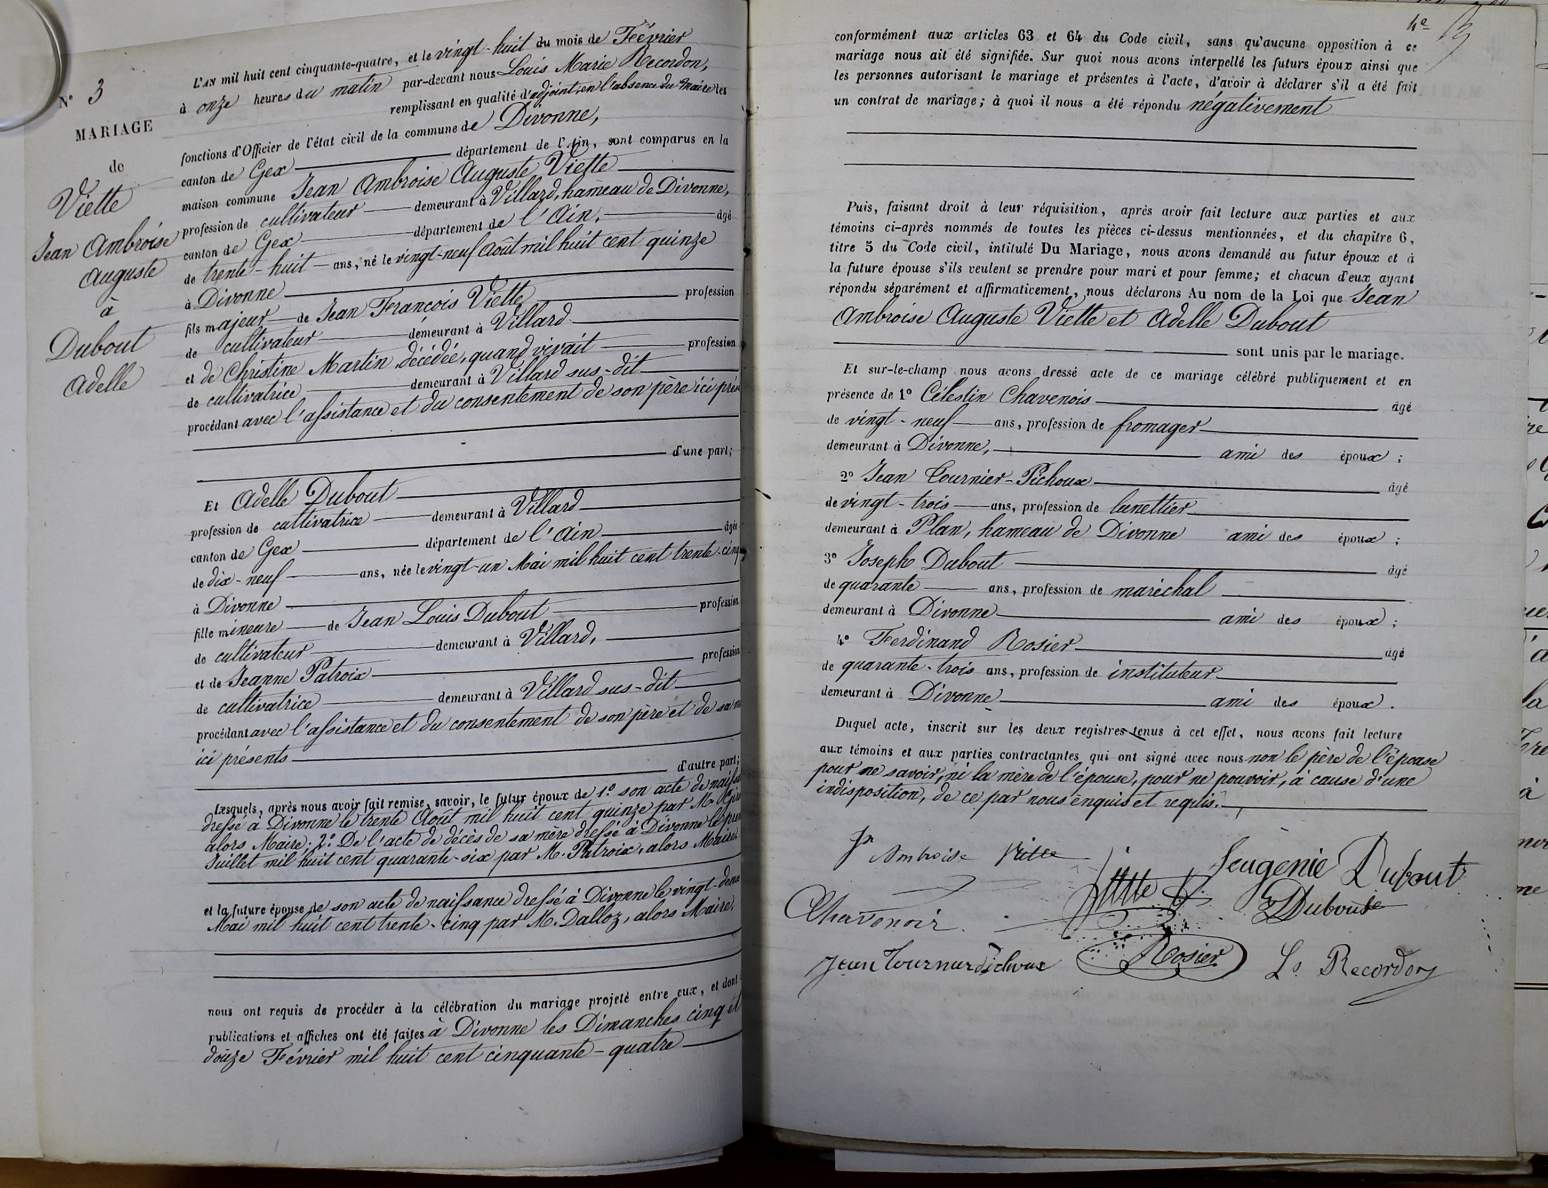 N° 3
MARIAGE
de
Viette
Jean Ambroise
Auguste
à
Dubout
Adelle
L'AN mil huit cent cinquante-quatre, et le vingt-huit du mois de Février
à onze heures du matin par-devant nous Louis Marie Recordon,
remplissant en qualité d'adjoint, en l'absence du Maire les
fonctions d'Officier de l'état civil de la commune de Divonne,
canton de Gex département de l'Ain, sont comparus en la
maison commune Jean Ambroise Auguste Viette
profession de cultivateur demeurant à Villard, hameau de Divonne,
canton de Gex département de l'Ain, âgé
de trente-huit ans, né le vingt-neuf Août mil huit cent quinze
à Divonne
fils majeur de Jean François Viette profession
de cultivateur demeurant à Villard
et de Christine Martin décédée, quand vivait profession
de cultivatrice demeurant à Villard sus-dit
procédant avec l'assistance et du consentement de son père ici prés
d'une part;
Et Adelle Dubout
profession de cultivatrice demeurant à Villard
canton de Gex département de l'Ain âgée
de dix-neuf ans, née le vingt-un Mai mil huit cent trente-cinq
à Divonne
fille mineure de Jean Louis Dubout profession
de cultivateur demeurant à Villard,
et de Jeanne Patroix profession
de cultivatrice demeurant à Villard sus-dit
procédant avec l'assistance et du consentement de son père et de sa m
ici présents
d'autre part;
Lesquels, après nous avoir fait remise, savoir, le futur époux de 1° son acte de naiss
dressé à Divonne le trente Août mil huit cent quinze par M.
alors Maire; 2° De l'acte de décès de sa mère dressé à Divonne le
Juillet mil huit cent quarante-six par M. Patroix, alors Maire
et la future épouse de son acte de naissance dressé à Divonne le vingt-deux
Mai mil huit cent trente-cinq par M. Dalloz, alors Maire,
nous ont requis de procéder à la célébration du mariage projeté entre eux, et dont
publications et affiches ont été faites à Divonne les Dimanches cinq et
douze Février mil huit cent cinquante-quatre
4e
conformément aux articles 63 et 64 du Code civil, sans qu'aucune opposition à ce
mariage nous ait été signifiée. Sur quoi nous avons interpellé les futurs époux ainsi que
les personnes autorisant le mariage et présentes à l'acte, d'avoir à déclarer s'il a été fait
un contrat de mariage; à quoi il nous a été répondu négativement
Puis, faisant droit à leur réquisition, après avoir fait lecture aux parties et aux
témoins ci-après nommés de toutes les pièces ci-dessus mentionnées, et du chapitre 6,
titre 5 du Code civil, intitulé Du Mariage, nous avons demandé au futur époux et à
la future épouse s'ils veulent se prendre pour mari et pour femme; et chacun d'eux ayant
répondu séparément et affirmativement, nous déclarons Au nom de la Loi que Jean
Ambroise Auguste Viette et Adelle Dubout
sont unis par le mariage.
Et sur-le-champ nous avons dressé acte de ce mariage célébré publiquement et en
présence de 1° Célestin Chavenois âgé
de vingt-neuf ans, profession de fromager
demeurant à Divonne, ami des époux;
2° Jean Tournier-Pichoux âgé
de vingt-trois ans, profession de lunettier
demeurant à Plan, hameau de Divonne ami des époux;
3° Joseph Dubout âgé
de quarante ans, profession de maréchal
demeurant à Divonne ami des époux;
4° Ferdinand Rosier âgé
de quarante-trois ans, profession de instituteur
demeurant à Divonne ami des époux.
Duquel acte, inscrit sur les deux registres tenus à cet effet, nous avons fait lecture
aux témoins et aux parties contractantes qui ont signé avec nous non le père de l'épouse
pour ne savoir, ni la mère de l'épouse, pour ne pouvoir, à cause d'une
indisposition, de ce par nous enquis et requis.
Jn Ambroise Viette
Jeugenie Dubout
Chavenoir
Dubout
Jean Tournier Pichoux
Rosier
Ls Recordon